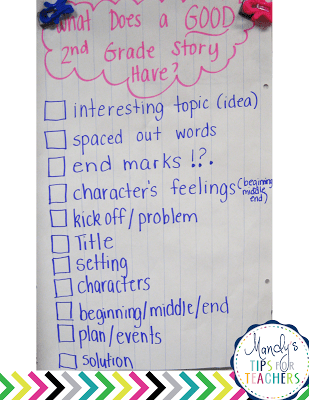 What Does a GOOD
2nd Grade Story
Have?
interesting topic (idea)
spaced out words
end marks !?.
character's feelings (beginning
middle
end)
kick off/problem
Title
setting
characters
beginning/middle/end
plan/events
solution
Mandy's
TIPS FOR
TEACHERS.